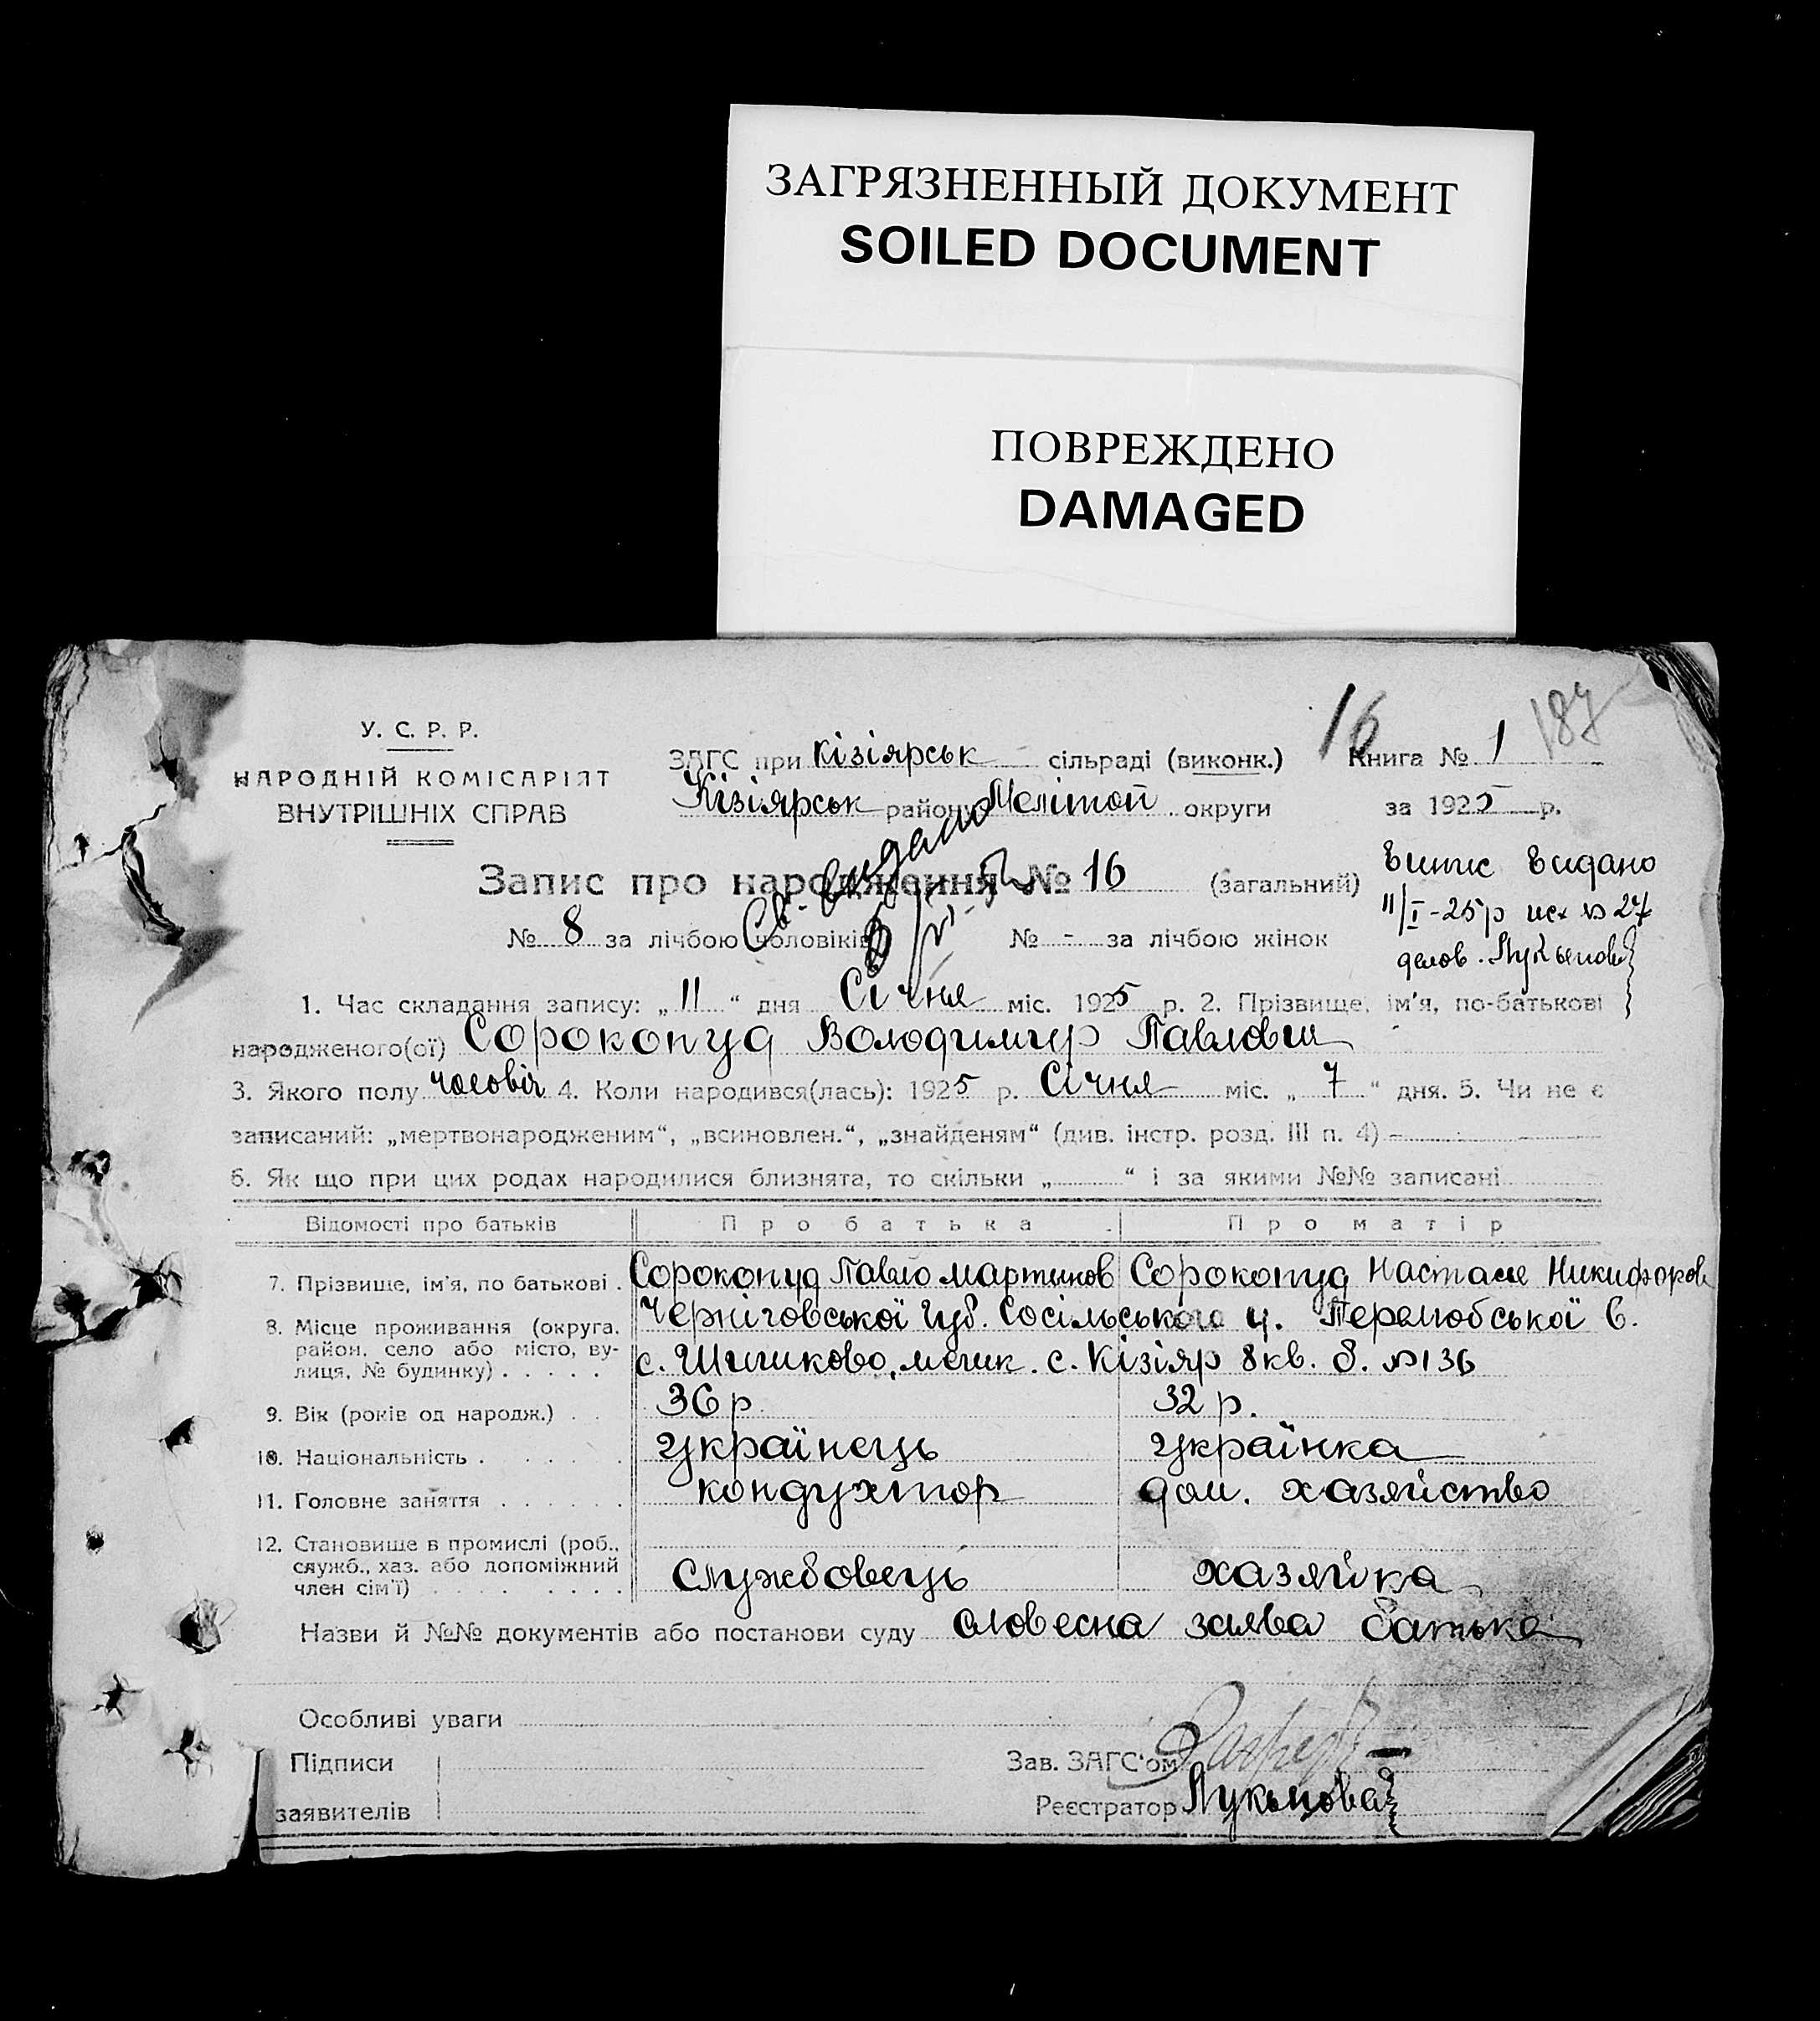 ЗАГРЯЗНЕННЫЙ ДОКУМЕНТ
SOILED DOCUMENT
ПОВРЕЖДЕНО
DAMAGED
16
187
У. С. Р. Р.
НАРОДНІЙ КОМІСАРІЯТ
ВНУТРІШНІХ СПРАВ
ЗАГС при Кізіярськ сільраді (виконк.)
Кізіярськ району Мелітоп округи
Книга № 1
за 1925 р.
Запис про народження № 16 (загальний)
Св. видано
№ 8 за лічбою чоловіків № - за лічбою жінок
Випис видано
11/I-25р исх № 27
делов. Лукьянова
1. Час складання запису: „11“ дня Січня міс. 1925 р. 2. Прізвище, ім'я, по-батькові
народженого(ої) Сорокопуд Володимир Павлович
3. Якого полу чоловіч 4. Коли народився(лась): 1925 р. Січня міс. „7“ дня. 5. Чи не є
записаний: „мертвонародженим“, „всиновлен.“, „знайденям“ (див. інстр. розд. III п. 4) -
6. Як що при цих родах народилися близнята, то скільки „ “ і за якими №№ записані
Відомості про батьків Про батька Про матір
7. Прізвище, ім'я, по батькові . Сорокопуд Павло Мартинов Сорокопуд Настася Никифоров
8. Місце проживання (округа, район, село або місто, вулиця, № будинку) . . . . .
Черніговської Губ. Сосільського у. Перелюбської в.
с. Шишково, мешк. с. Кізіяр 8 кв. д. №136
9. Вік (років од народж.) . . 36 р. 32 р.
10. Національність . . . . . українець українка
11. Головне заняття . . . . . . кондухтор дом. хазяйство
12. Становище в промислі (роб.,
служб., хаз. або допоміжний
член сім'ї) . . . . . . . . . службовець хазяйка
Назви й №№ документів або постанови суду словесна заява батька
Особливі уваги
Підписи Зав. ЗАГС'ом
заявителів Реєстратор Лукьянова